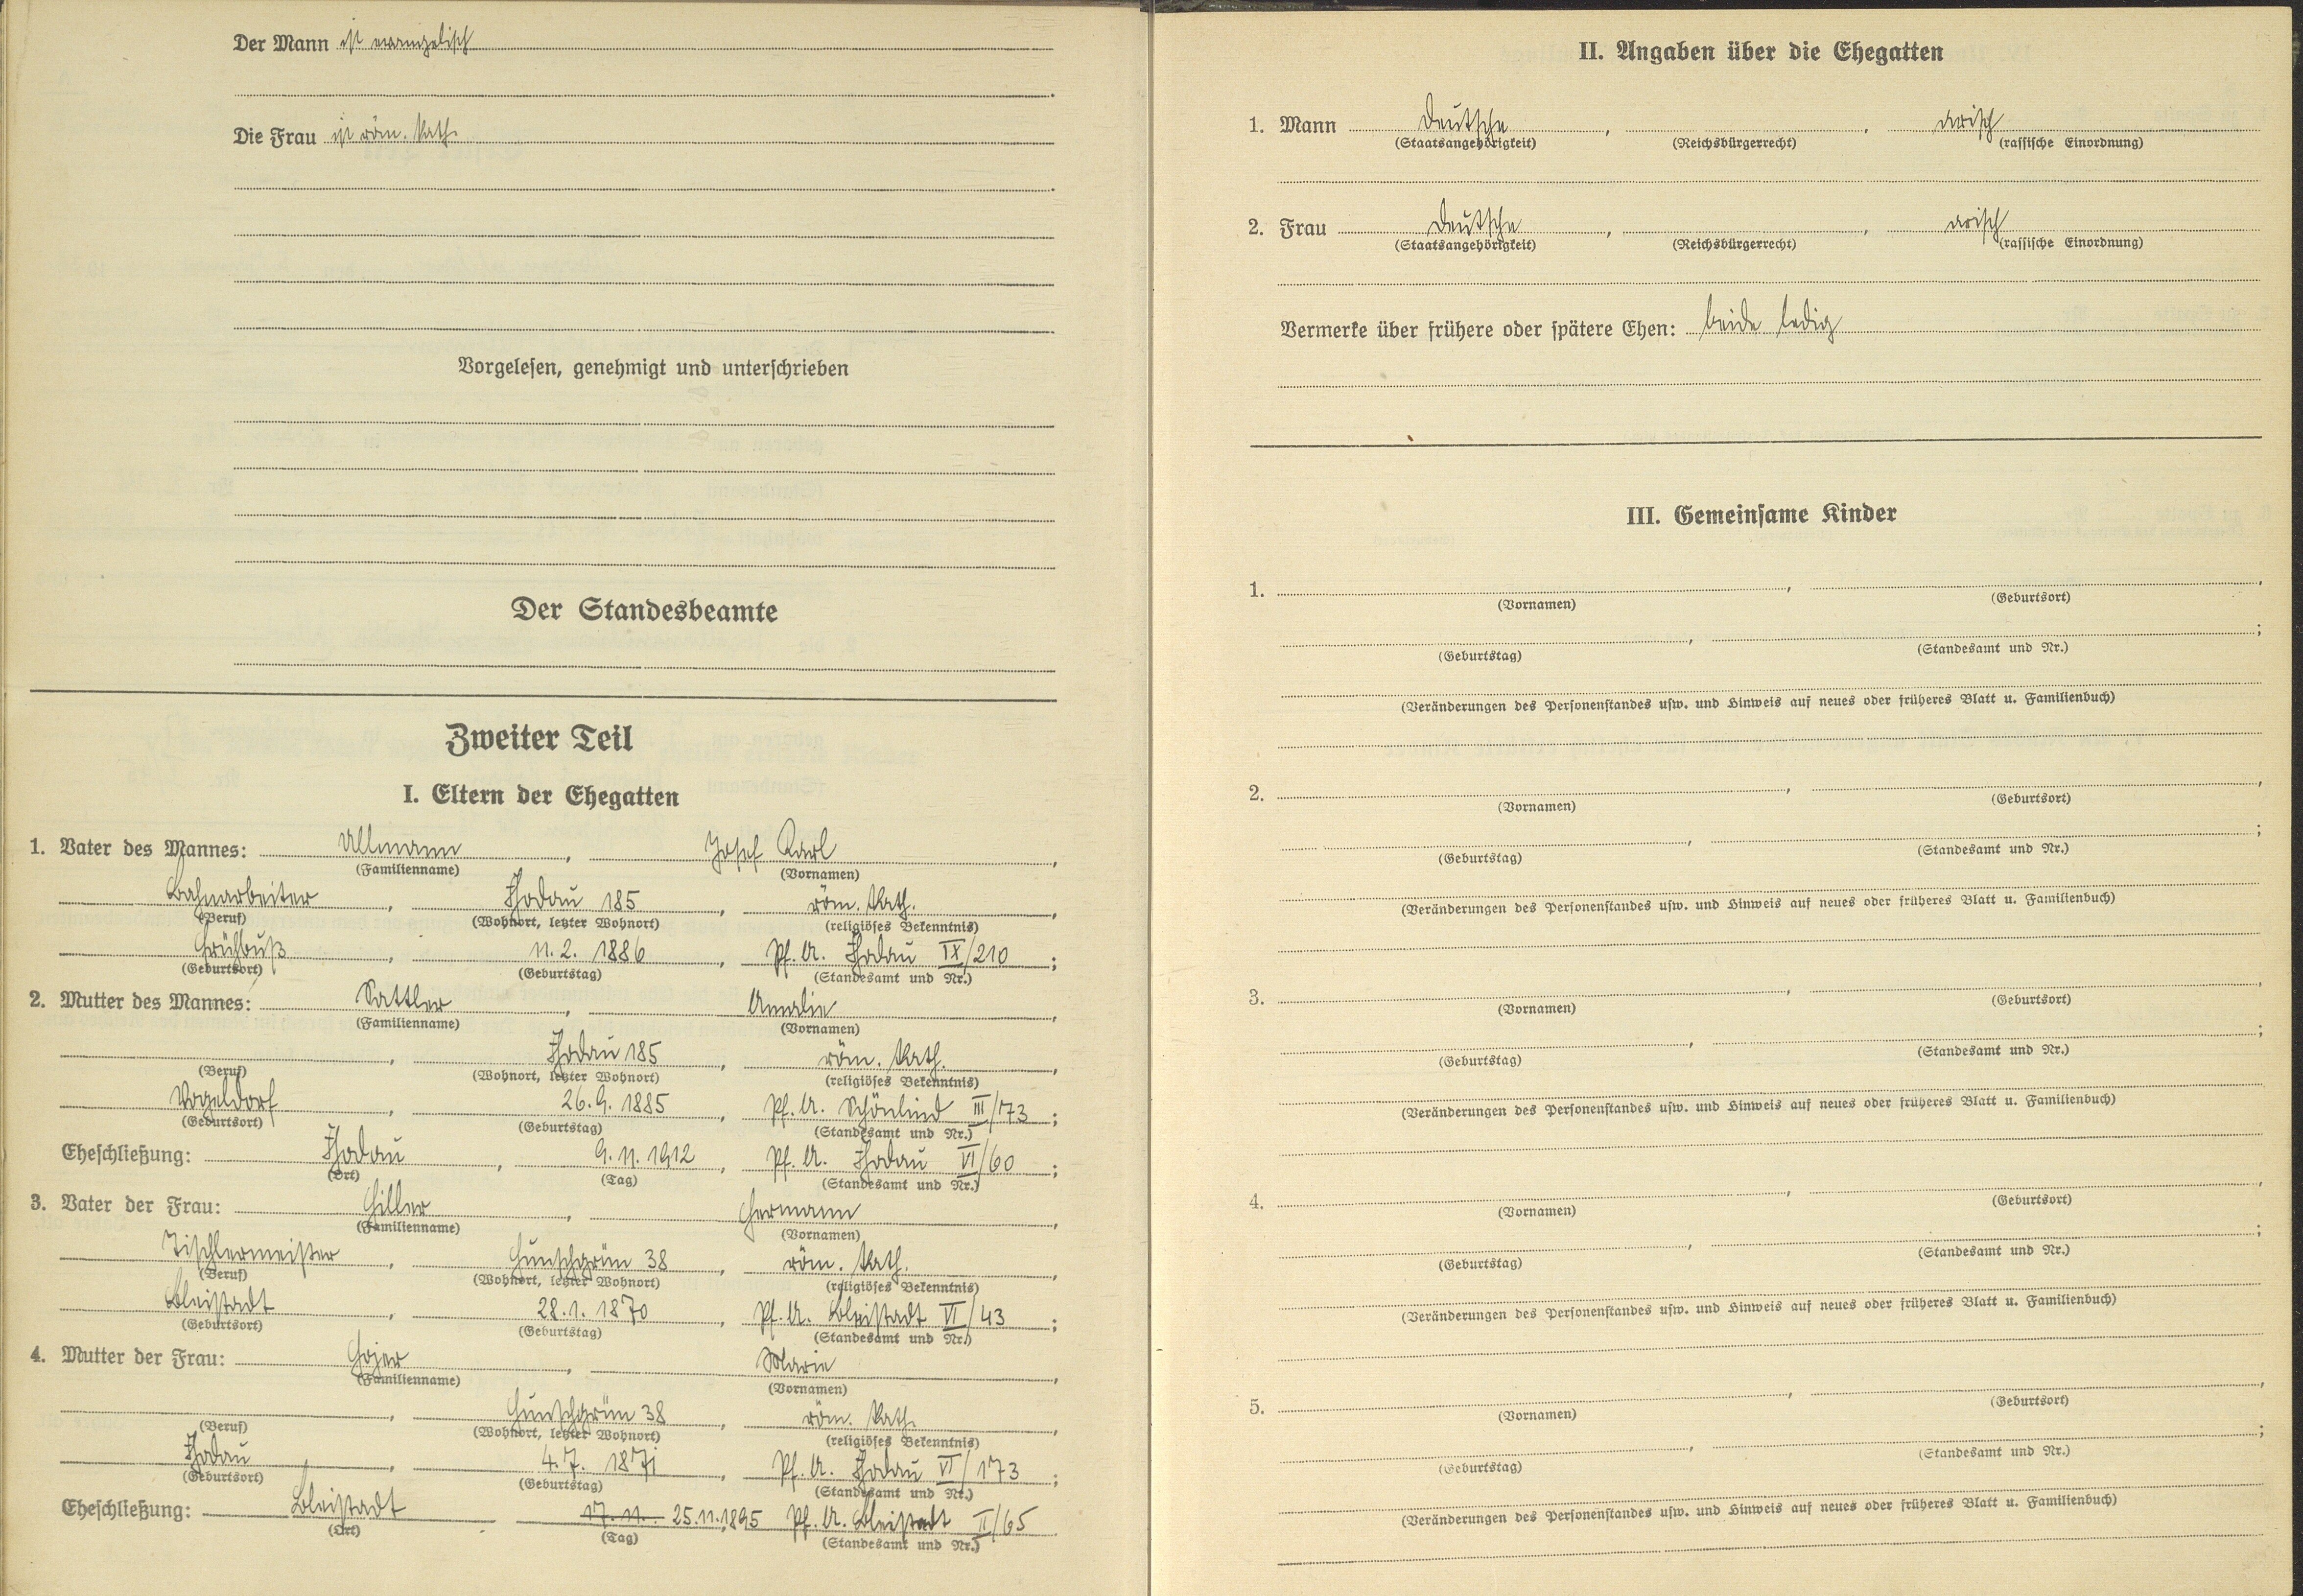 Der Mann ist evangelisch
Die Frau ist röm. kath.
Vorgelesen, genehmigt und unterschrieben
Der Standesbeamte
Zweiter Teil
I. Eltern der Ehegatten
1. Vater des Mannes: Ullmann, Josef Karl,
(Familienname) (Vornamen)
Bahnarbeiter, Thodau 185, röm. kath.,
(Beruf) (Wohnort, letzter Wohnort) (religiöses Bekenntnis)
Frühbuß, 11.2. 1886, Pf. A. Thodau IX/210;
(Geburtsort) (Geburtstag) (Standesamt und Nr.)
2. Mutter des Mannes: Sattler, Amalie,
(Familienname) (Vornamen)
, Thodau 185, röm. kath.,
(Beruf) (Wohnort, letzter Wohnort) (religiöses Bekenntnis)
Vogeldorf, 26.9. 1885, Pf. A. Schönlind III/173;
(Geburtsort) (Geburtstag) (Standesamt und Nr.)
Eheschließung: Thodau, 9.11.1912, Pf. A. Thodau VI/60;
(Ort) (Tag) (Standesamt und Nr.)
3. Vater der Frau: Hiller, Hermann,
(Familienname) (Vornamen)
Tischlermeister, Hunschgrün 38, röm. kath.,
(Beruf) (Wohnort, letzter Wohnort) (religiöses Bekenntnis)
Bleistadt, 28.1. 1870, Pf. A. Bleistadt VI/43;
(Geburtsort) (Geburtstag) (Standesamt und Nr.)
4. Mutter der Frau: Gojer, Marie,
(Familienname) (Vornamen)
, Hunschgrün 38, röm. kath.,
(Beruf) (Wohnort, letzter Wohnort) (religiöses Bekenntnis)
Thodau, 4.7. 1871, Pf. A. Thodau VI/173;
(Geburtsort) (Geburtstag) (Standesamt und Nr.)
Eheschließung: Bleistadt 17. 11. 25.11.1895 Pf. A. Bleistadt II/65
(Ort) (Tag) (Standesamt und Nr.)
II. Angaben über die Ehegatten
1. Mann Deutsche, , arisch
(Staatsangehörigkeit) (Reichsbürgerrecht) (rassische Einordnung)
2. Frau Deutsche, , arisch
(Staatsangehörigkeit) (Reichsbürgerrecht) (rassische Einordnung)
Vermerke über frühere oder spätere Ehen: beide ledig
III. Gemeinsame Kinder
1. , ,
(Vornamen) (Geburtsort)
, ;
(Geburtstag) (Standesamt und Nr.)
(Veränderungen des Personenstandes usw. und Hinweis auf neues oder früheres Blatt u. Familienbuch)
2. , ,
(Vornamen) (Geburtsort)
, ;
(Geburtstag) (Standesamt und Nr.)
(Veränderungen des Personenstandes usw. und Hinweis auf neues oder früheres Blatt u. Familienbuch)
3. , ,
(Vornamen) (Geburtsort)
, ;
(Geburtstag) (Standesamt und Nr.)
(Veränderungen des Personenstandes usw. und Hinweis auf neues oder früheres Blatt u. Familienbuch)
4. , ,
(Vornamen) (Geburtsort)
, ;
(Geburtstag) (Standesamt und Nr.)
(Veränderungen des Personenstandes usw. und Hinweis auf neues oder früheres Blatt u. Familienbuch)
5. , ,
(Vornamen) (Geburtsort)
, ;
(Geburtstag) (Standesamt und Nr.)
(Veränderungen des Personenstandes usw. und Hinweis auf neues oder früheres Blatt u. Familienbuch)